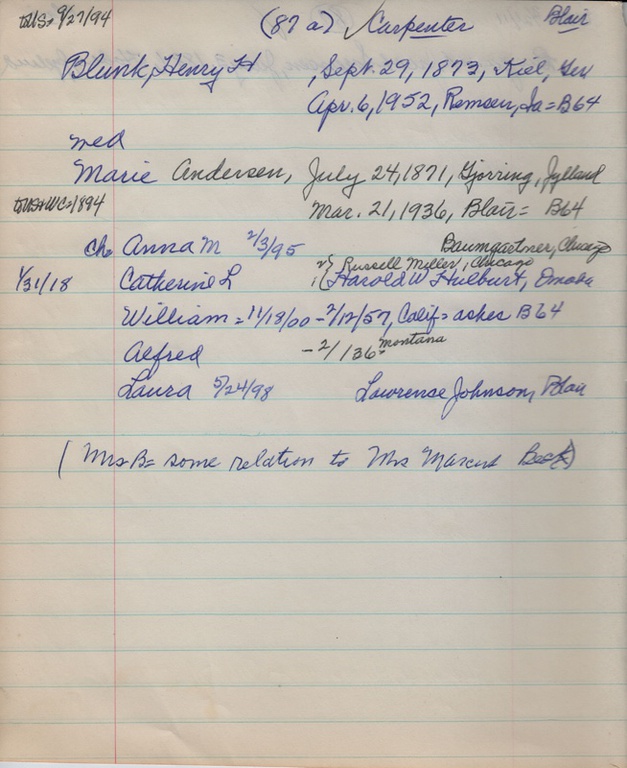 to US = 9/27/94 (87 a) Carpenter Blair
Blunk, Henry H , Sept. 29, 1873, Kiel, Ger
Apr. 6, 1952, Remsen, Ia = B64
med
Marie Andersen, July 24, 1871, Hjorring, Jylland
to US + WC = 1894 Mar. 21, 1936, Blair = B64
ch Anna M 2/3/95 Baumgartner, Chicago
2) Russell Miller, Chicago
1/31/18 Catherine L 1( Harold W Hulburt, Omaha
William = 11/18/00 - 2/12/57, Calif = ashes B64
Alfred - 2/ /36 = Montana
Laura 5/24/98 Lawrence Johnson, Blair
(Mrs B = some relation to Mrs Marcus Beck)